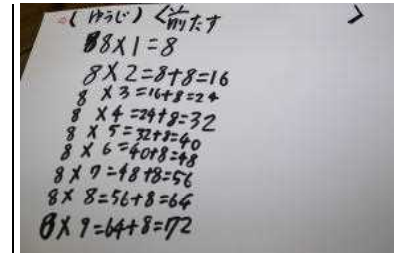 (ゆうじ)〈前たす 〉
8×1=8
8×2=8+8=16
8×3=16+8=24
8×4=24+8=32
8×5=32+8=40
8×6=40+8=48
8×7=48+8=56
8×8=56+8=64
8×9=64+8=72